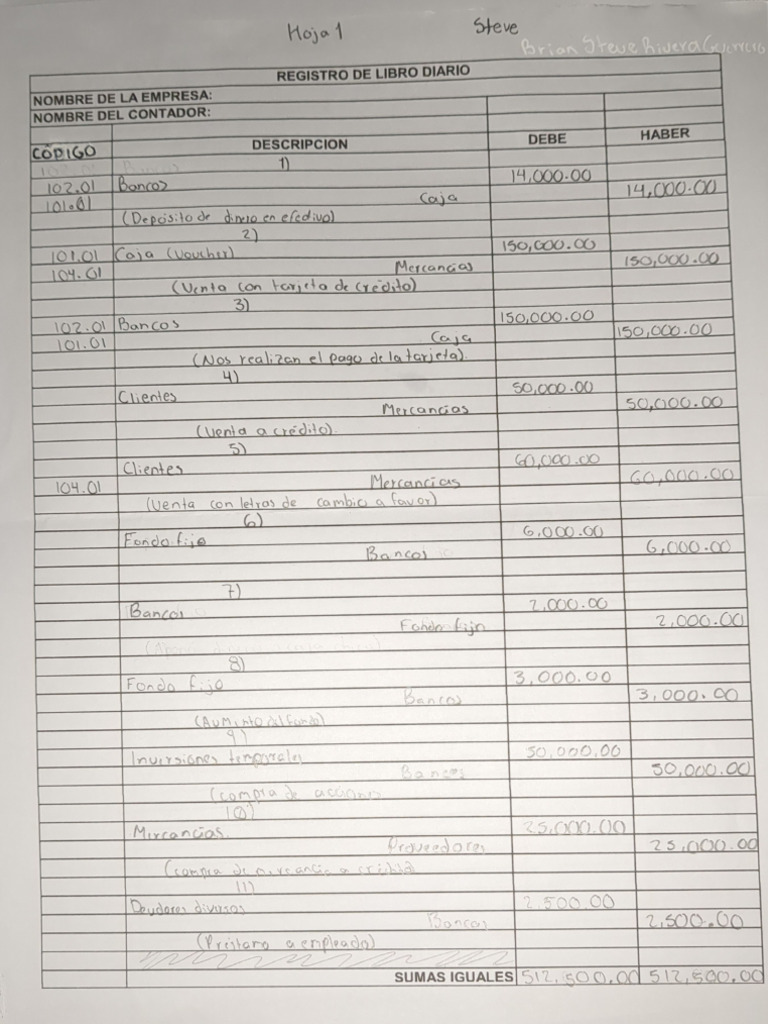 Hoja 1 Steve
Brian Steve Rivera Guerrero
REGISTRO DE LIBRO DIARIO
NOMBRE DE LA EMPRESA:
NOMBRE DEL CONTADOR:
CÓDIGO DESCRIPCION DEBE HABER
1)
102.01 Bancos 14,000.00
101.01 Caja 14,000.00
(Depósito de dinero en efectivo)
2)
101.01 Caja (Voucher) 150,000.00
104.01 Mercancias 150,000.00
(Venta con tarjeta de crédito)
3)
102.01 Bancos 150,000.00
101.01 Caja 150,000.00
(Nos realizan el pago de la tarjeta).
4)
Clientes 50,000.00
Mercancias 50,000.00
(Venta a crédito).
5)
Clientes 60,000.00
104.01 Mercancias 60,000.00
(Venta con letras de cambio a favor)
6)
Fondo fijo 6,000.00
Bancos 6,000.00
7)
Bancos 2,000.00
Fondo fijo 2,000.00
8)
Fondo fijo 3,000.00
Bancos 3,000.00
(Aumento del fondo)
9)
Inversiones temporales 50,000.00
Bancos 50,000.00
(compra de acciones
10)
Mercancias. 25,000.00
Proveedores 25,000.00
(compra de mercancia a crédito)
11)
Deudores diversos 2,500.00
Bancos 2,500.00
(Préstamo a empleado)
SUMAS IGUALES 512,500.00 512,500.00